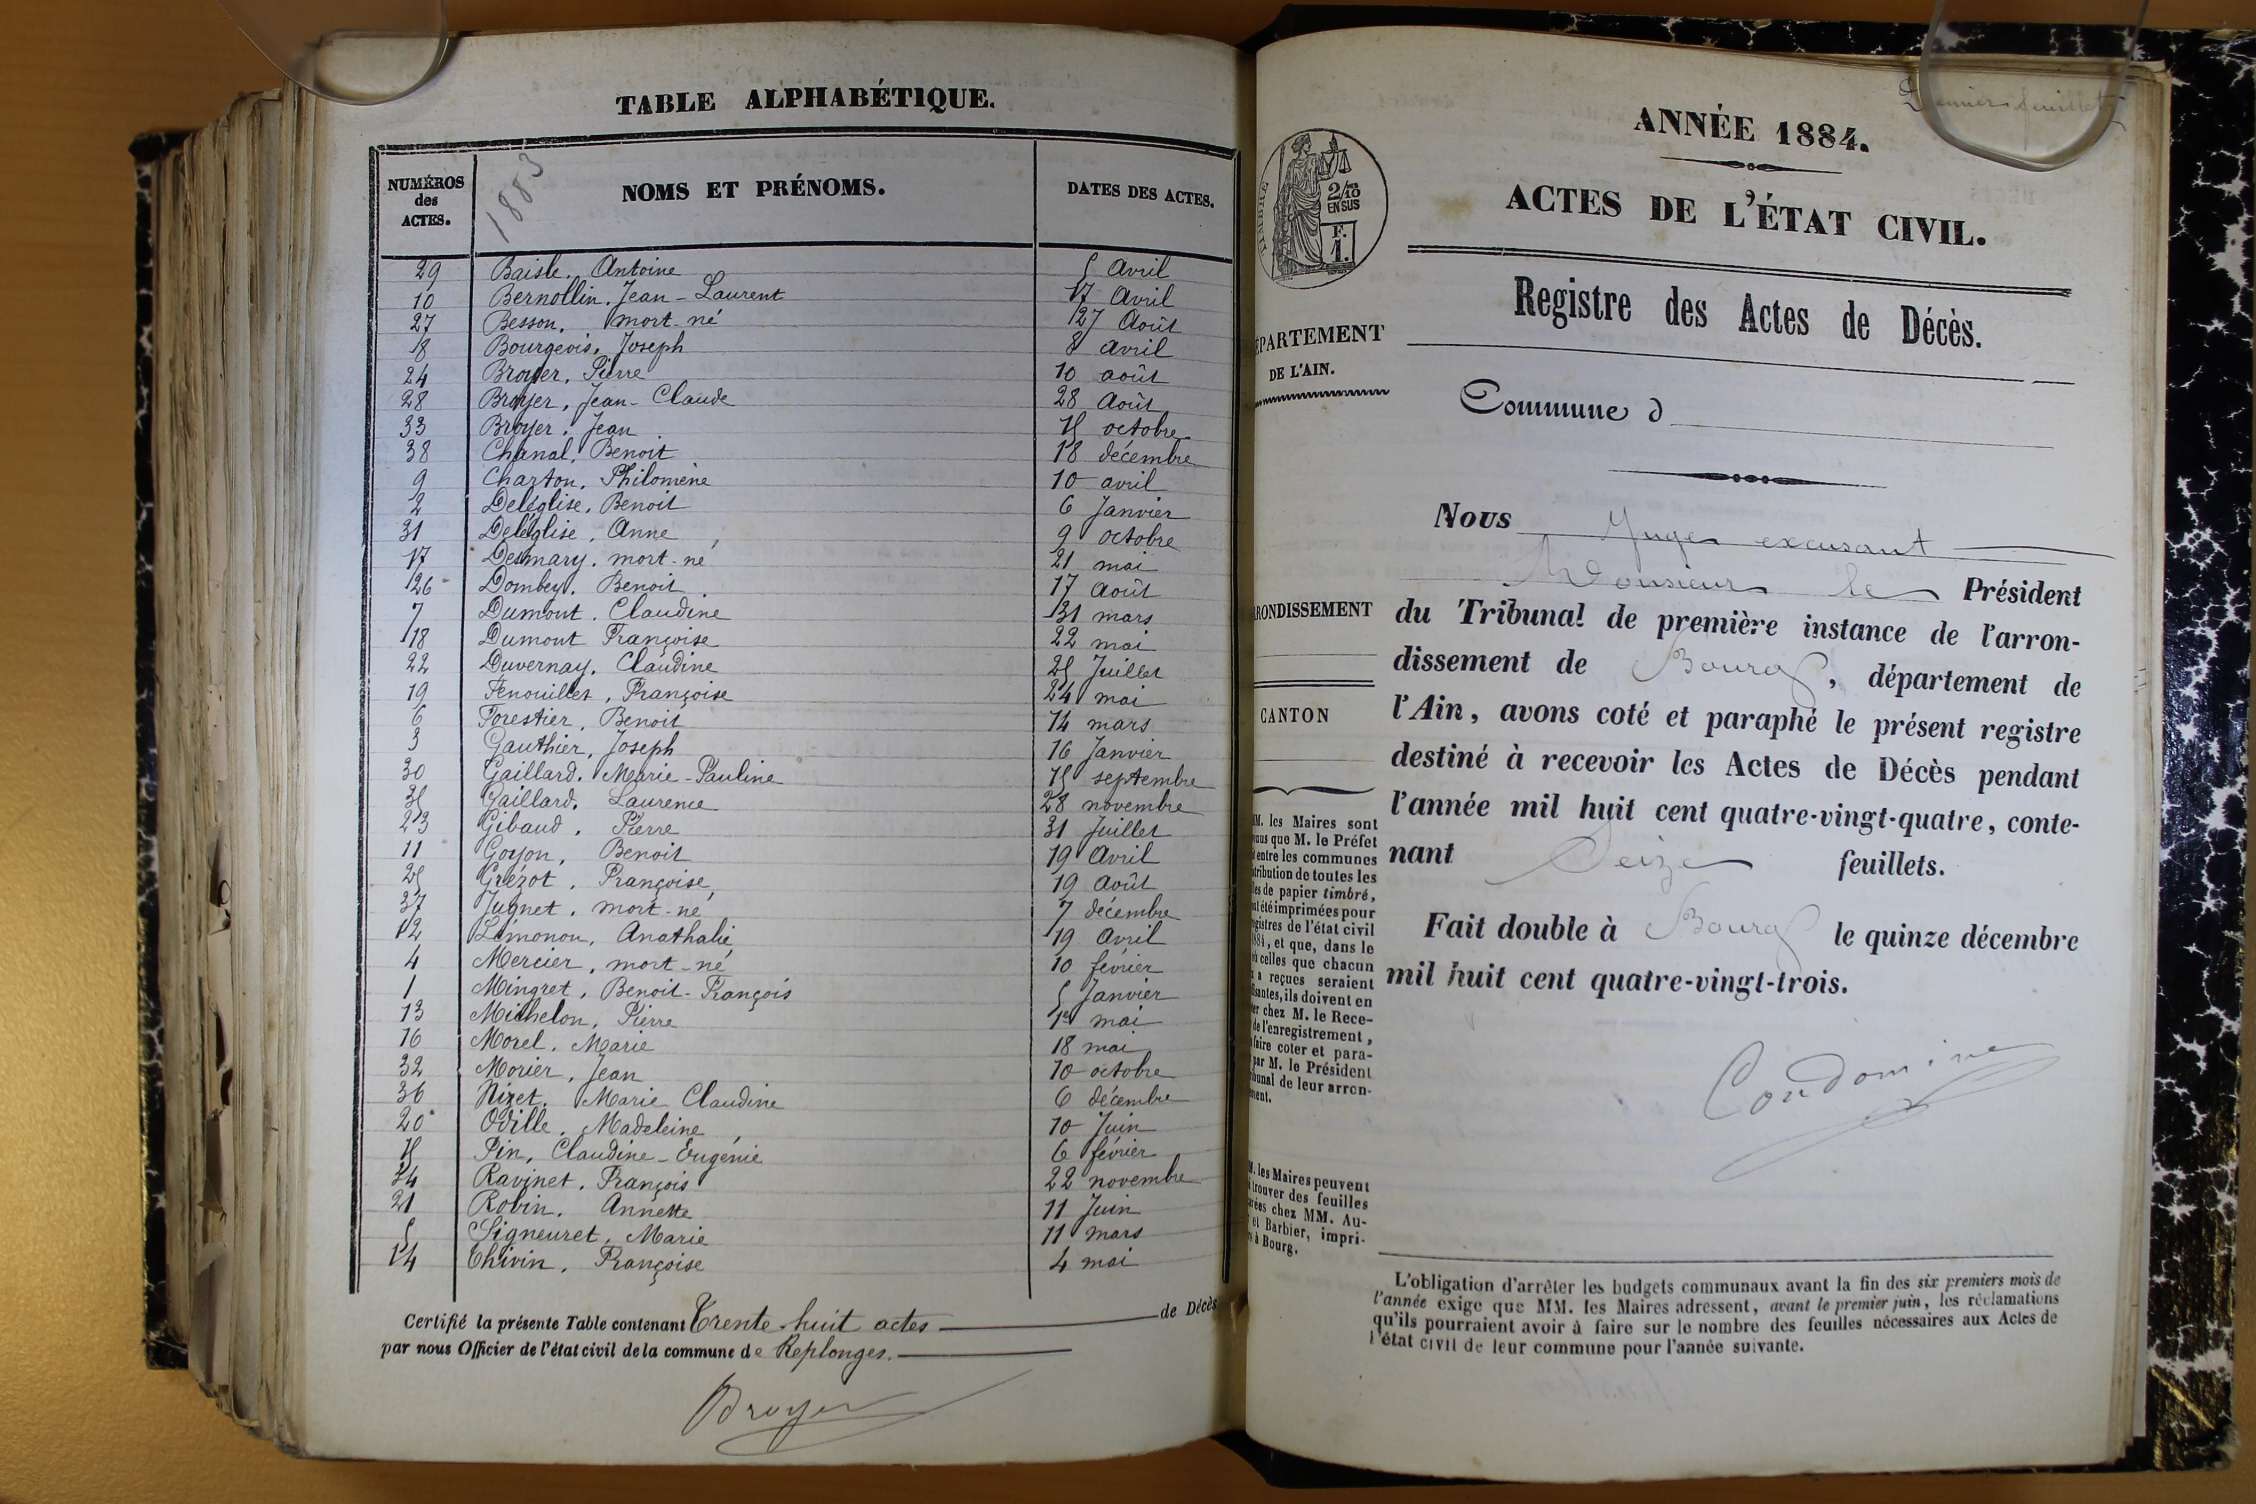 TABLE ALPHABÉTIQUE.
NUMÉROS des ACTES.
1883
NOMS ET PRÉNOMS.
DATES DES ACTES.
29 Baisle, Antoine 5 Avril
10 Bernollin, Jean-Laurent 17 Avril
27 Besson, mort-né 27 Août
8 Bourgeois, Joseph 8 avril
24 Broyer, Pierre 10 août
28 Broyer, Jean-Claude 28 Août
33 Broyer, Jean 15 octobre
38 Chanal, Benoit 18 décembre
9 Charton, Philomène 10 avril
2 Deléglise, Benoit 6 Janvier
31 Deléglise, Anne 9 octobre
17 Desmary, mort-né 21 mai
26 Dombey, Benoit 17 Août
7 Dumont, Claudine 31 mars
18 Dumont Françoise 22 mai
22 Duvernay, Claudine 25 Juillet
19 Fenouillet, Françoise 24 mai
6 Forestier, Benoit 14 mars
3 Gauthier, Joseph 16 Janvier
30 Gaillard, Marie-Pauline 15 septembre
35 Gaillard, Laurence 28 novembre
23 Gibaud, Pierre 31 Juillet
11 Goyon, Benoit 19 Avril
25 Grézot, Françoise 19 Août
37 Jugnet, mort-né 7 décembre
12 Limonon, Anathalie 19 Avril
4 Mercier, mort-né 10 février
1 Mingret, Benoit-François 5 Janvier
13 Michelon, Pierre 1er mai
16 Morel, Marie 18 mai
32 Morier, Jean 10 octobre
36 Nizet, Marie Claudine 6 décembre
20 Odille, Madeleine 10 Juin
15 Pin, Claudine-Eugénie 6 février
34 Ravinet, François 22 novembre
21 Robin, Annette 11 Juin
5 Signeuret, Marie 11 mars
14 Thivin, Françoise 4 mai
Certifié la présente Table contenant Trente-huit actes de Décès
par nous Officier de l'état civil de la commune de Replonges.
Broyer
ANNÉE 1884.
ACTES DE L'ÉTAT CIVIL.
Registre des Actes de Décès.
Commune d
Nous Juge excusant
Monsieur le Président
du Tribunal de première instance de l'arron-
dissement de Bourg, département de
l'Ain, avons coté et paraphé le présent registre
destiné à recevoir les Actes de Décès pendant
l'année mil huit cent quatre-vingt-quatre, conte-
nant Seize feuillets.
Fait double à Bourg le quinze décembre
mil huit cent quatre-vingt-trois.
Condomine
L'obligation d'arrêter les budgets communaux avant la fin des six premiers mois de
l'année exige que MM. les Maires adressent, avant le premier juin, les réclamations
qu'ils pourraient avoir à faire sur le nombre des feuilles nécessaires aux Actes de
l'état civil de leur commune pour l'année suivante.
2/10
EN SUS
F.
1.
ÉPARTEMENT
DE L'AIN.
RONDISSEMENT
CANTON
MM. les Maires sont
que M. le Préfet
entre les communes
tribution de toutes les
les de papier timbré,
été imprimées pour
gistres de l'état civil
et que, dans le
celles que chacun
a reçues seraient
ils doivent en
chez M. le Rece-
de l'enregistrement,
faire coter et para-
par M. le Président
bunal de leur arron-
ment.
les Maires peuvent
trouver des feuilles
chez MM. Au-
et Barbier, impri-
à Bourg.